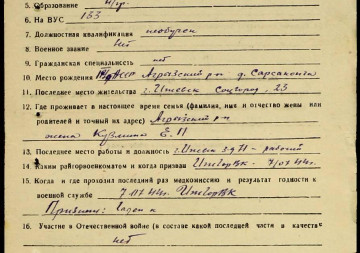 5. Образование н/ср.
6. На ВУС 133
7. Должностная квалификация необучен
8. Военное звание нет
9. Гражданская специальность нет
10. Место рождения ТАССР Агрызский р-н д. Сарсак-
11. Последнее место жительства г. Ижевск Соцгород-23
12. Где проживает в настоящее время семья (фамилия, имя и отчество жены или
родителей и точный их адрес) Агрызский р-н
жена Кузмина Е.П
13. Последнее место работы и должность г. Ижевск з-д 71 - рабочий
14. Каким райгорвоенкоматом и когда призван ИжГорВК - 7/07 44г.
15. Когда и где проходил последний раз медкомиссию и результат годности к
военной службе 7.07.44г. ИжГорВК
годен
16. Участие в Отечественной войне (в составе какой последней части в качестве
нет